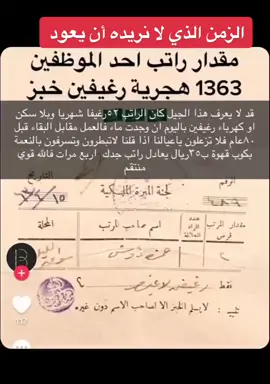 الزمن الذي لا نريده أن يعود
مقدار راتب احد الموظفين
1363 هجرية رغيفين خبز
قد لا يعرف هذا الجيل كان الراتب ٥٢رغيفا شهريا وبلا سكن
او كهرباء رغيفين باليوم ان وجدت ماء فالعمل مقابل البقاء قبل
٨٠عام فلا تزعلون ياعيالنا اذا قلنا لاتبطرون وتسرفون بالنعمة
بكوب قهوة ب٢٥ريال يعادل راتب جدك اربع مرات فالله قوي
منتقم
لجنة الميرة الملكية
مقدار المرتب
قرص
عدد
افراد
العائلة
اسم صاحب المرتب
المحلة
٢
فقط
لايسلم الخبز الا لصاحب الاسم دون غيره.